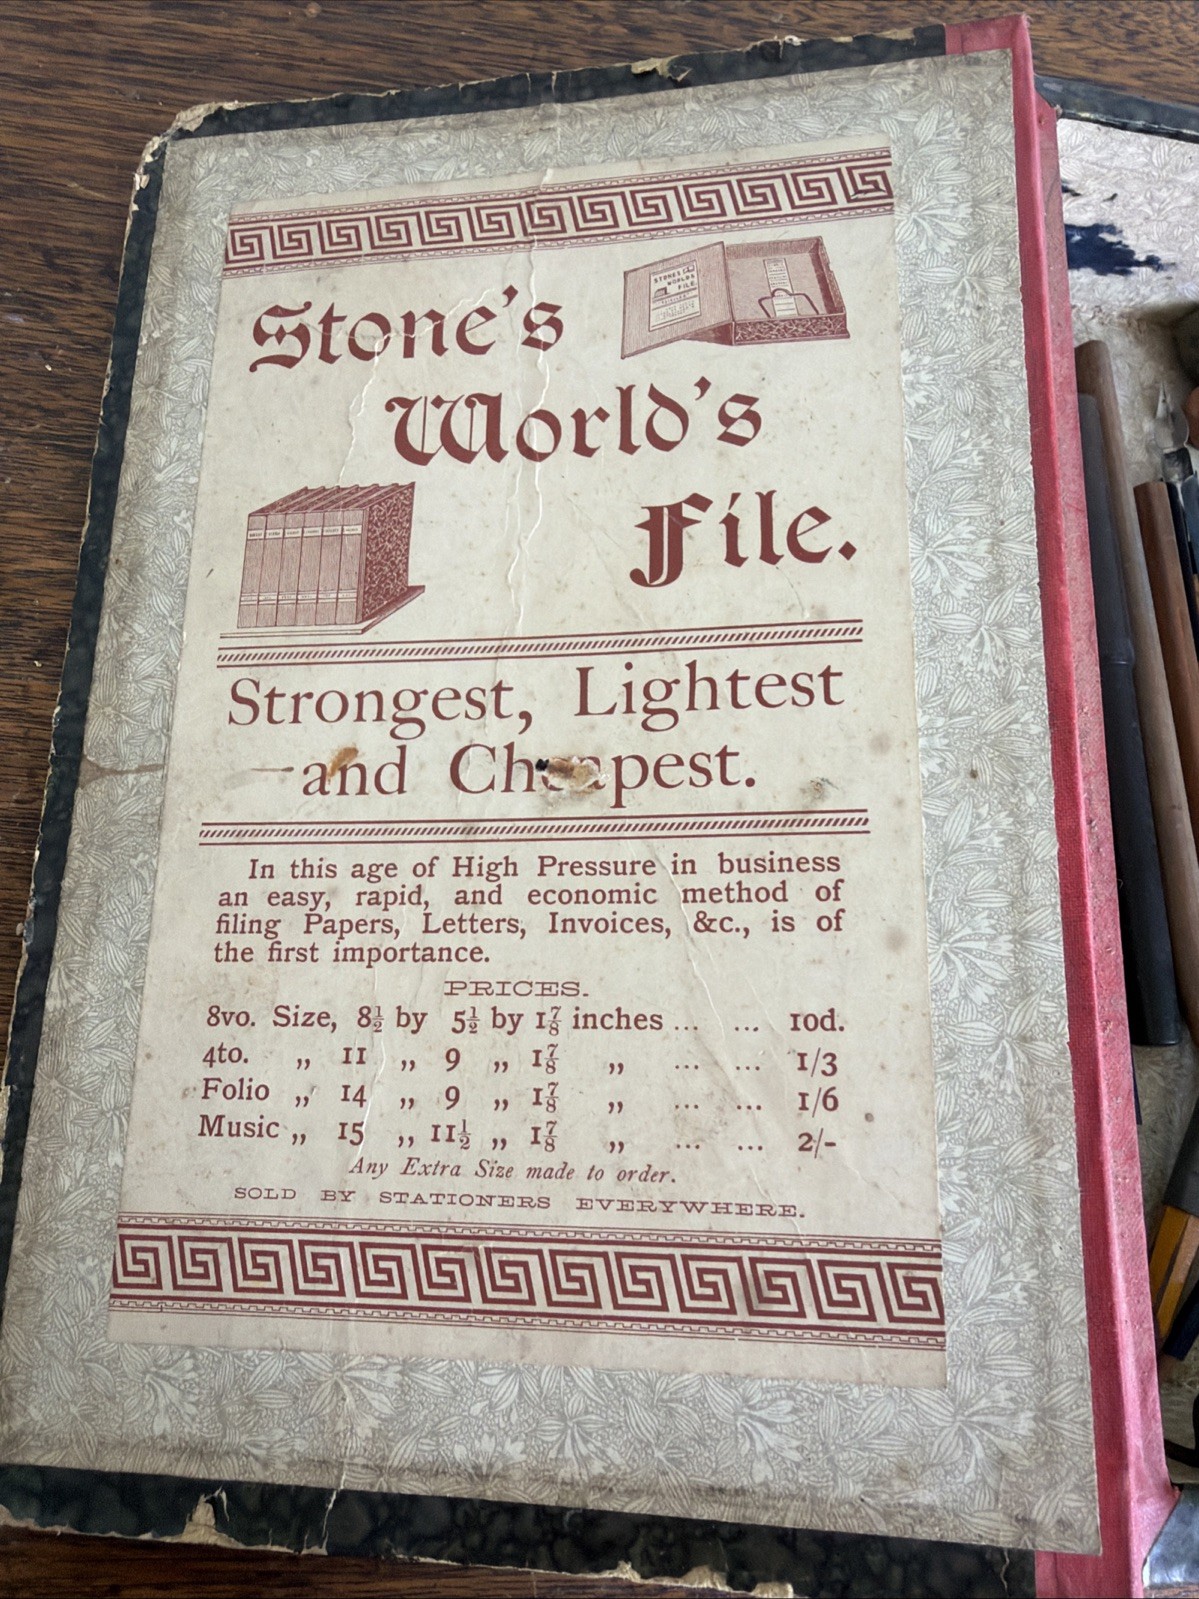 Stone's
World's
File.
STONE'S
WORLD'S
FILE.
Strongest, Lightest
and Cheapest.
In this age of High Pressure in business
an easy, rapid, and economic method of
filing Papers, Letters, Invoices, &c., is of
the first importance.
PRICES.
8vo. Size, 8½ by 5½ by 1⅞ inches ... ... 10d.
4to. „ 11 „ 9 „ 1⅞ „ ... ... 1/3
Folio „ 14 „ 9 „ 1⅞ „ ... ... 1/6
Music „ 15 „ 11½ „ 1⅞ „ ... ... 2/-
Any Extra Size made to order.
SOLD BY STATIONERS EVERYWHERE.